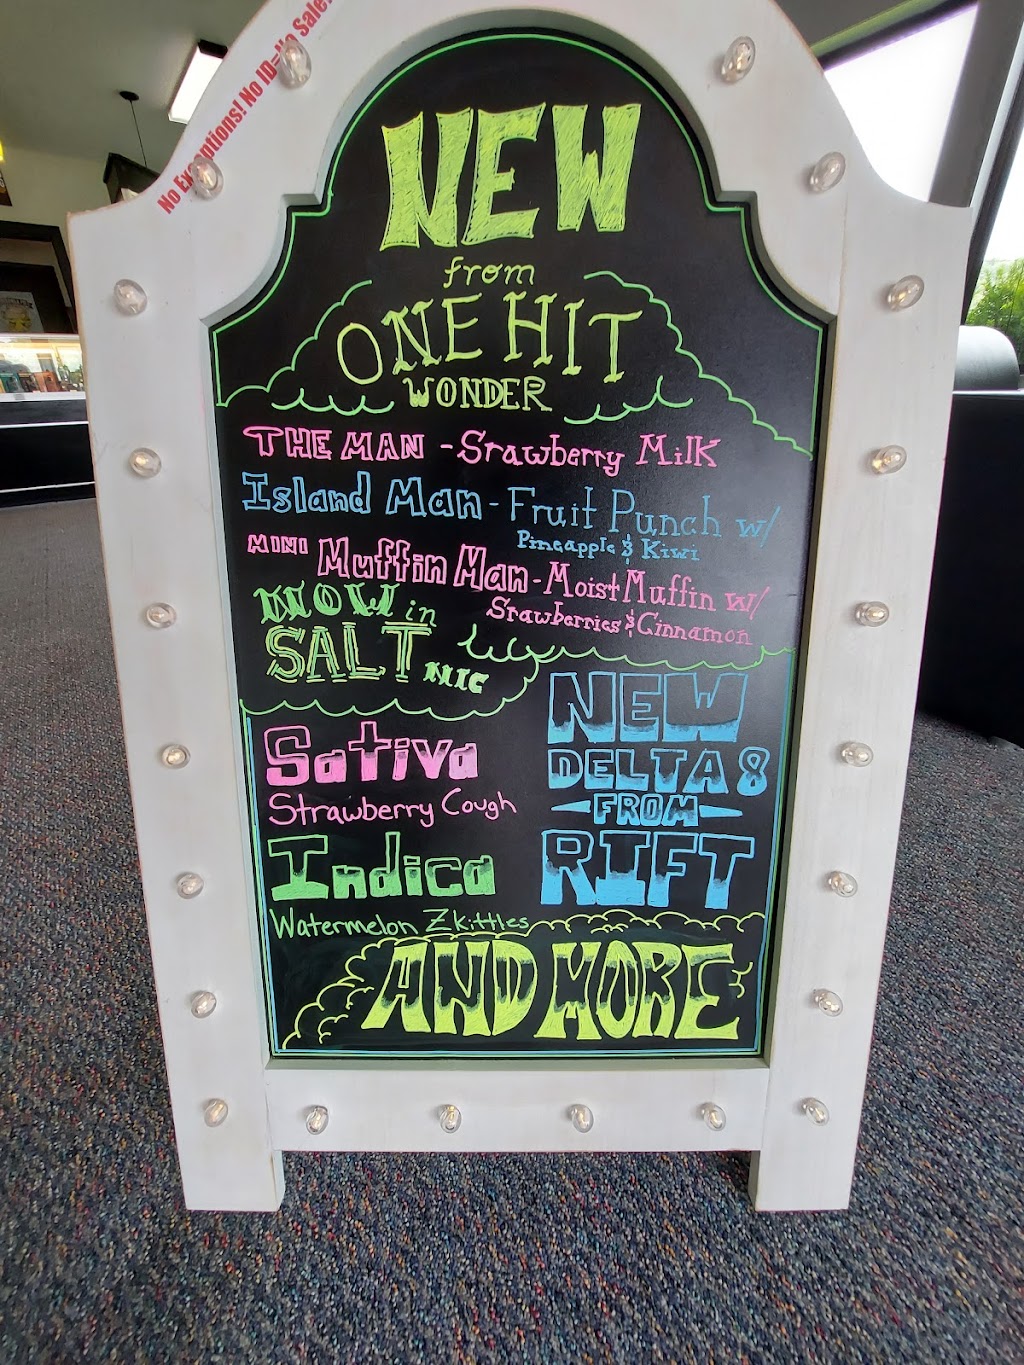 No Exceptions! No ID=No Sale!
NEW
from
ONE HIT
WONDER
THE MAN - Srawberry Milk
Island Man - Fruit Punch w/
Pineapple & Kiwi
MINI Muffin Man - Moist Muffin w/
Srawberries & Cinnamon
NOW in
SALT NIC
Sativa
Strawberry Cough
Indica
Watermelon Zkittles
NEW
DELTA 8
FROM
RIFT
AND MORE